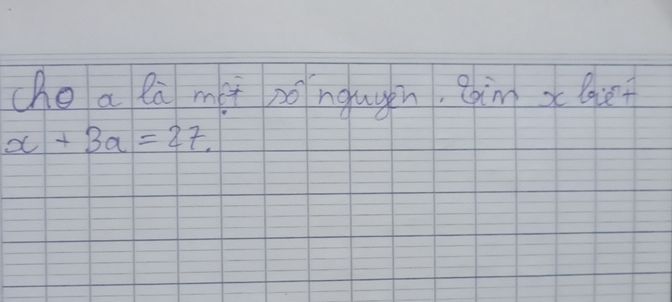 Cho a là một số nguyên. Tìm x biết
x + 3a = 27.